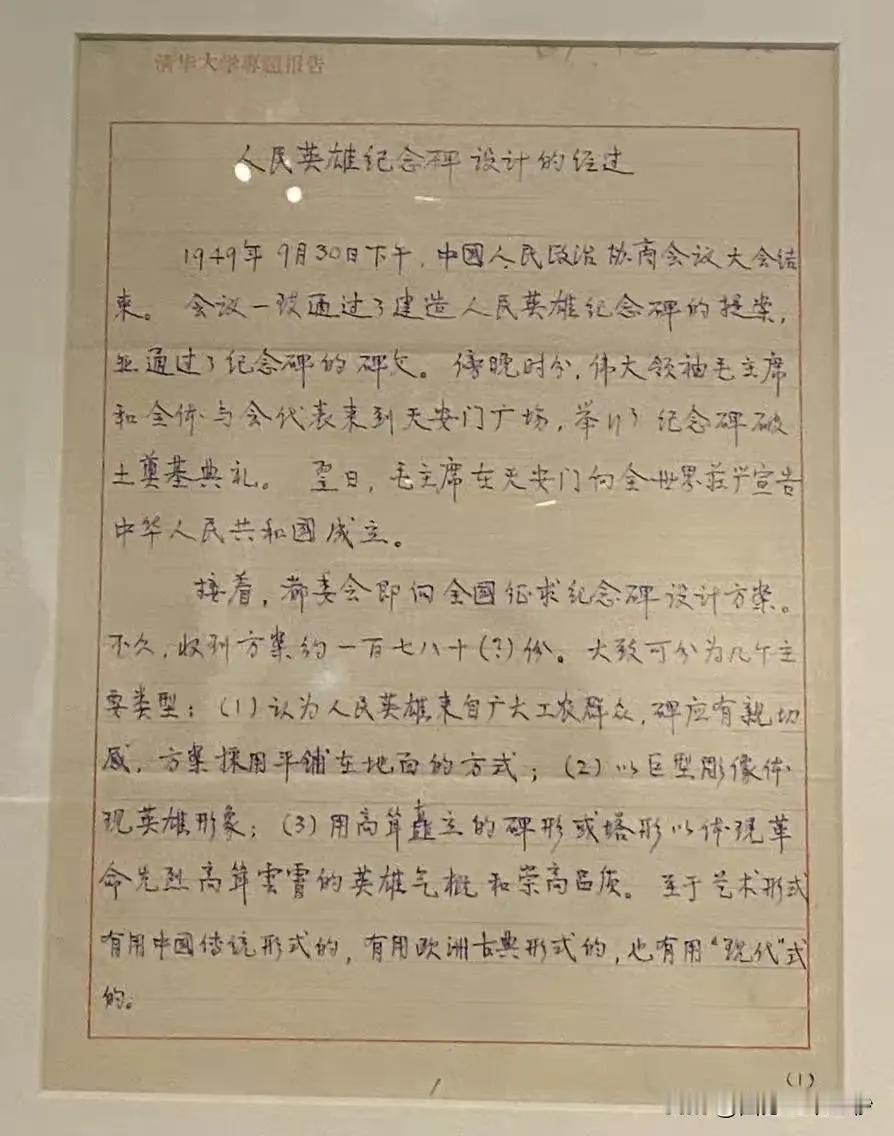 清华大学专题报告
人民英雄纪念碑设计的经过
1949年9月30日下午，中國人民政治协商会议大会结
束。会议一致通过了建造人民英雄纪念碑的提案，
並通过了纪念碑的碑文。傍晚时分，伟大领袖毛主席
和全体与会代表来到天安门广场，举行了纪念碑破
土奠基典礼。翌日，毛主席在天安门向全世界莊严宣告
中华人民共和國成立。
接着，都委会即向全国征求纪念碑设计方案。
不久，收到方案约一百七八十(?)份。大致可分为几个主
要类型：(1)认为人民英雄来自广大工农群众，碑应有親切
感，方案採用平铺在地面的方式；(2)以巨型彫像体
现英雄形象；(3)用高耸矗立的碑形或塔形以体现革
命先烈高耸雲霄的英雄气概和崇高品质。至于艺术形式
有用中國传统形式的，有用欧洲古典形式的，也有用“现代”式
的。
1
(1)